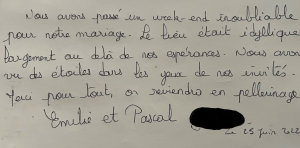 Nous avons passé un week-end inoubliable
pour notre mariage. Le lieu était idyllique
largement au delà de nos espérances. Nous avons
vu des étoiles dans les yeux de nos invités.
Merci pour tout, on reviendra en pellerinage
Emilie et Pascal
Le 25 juin 2022